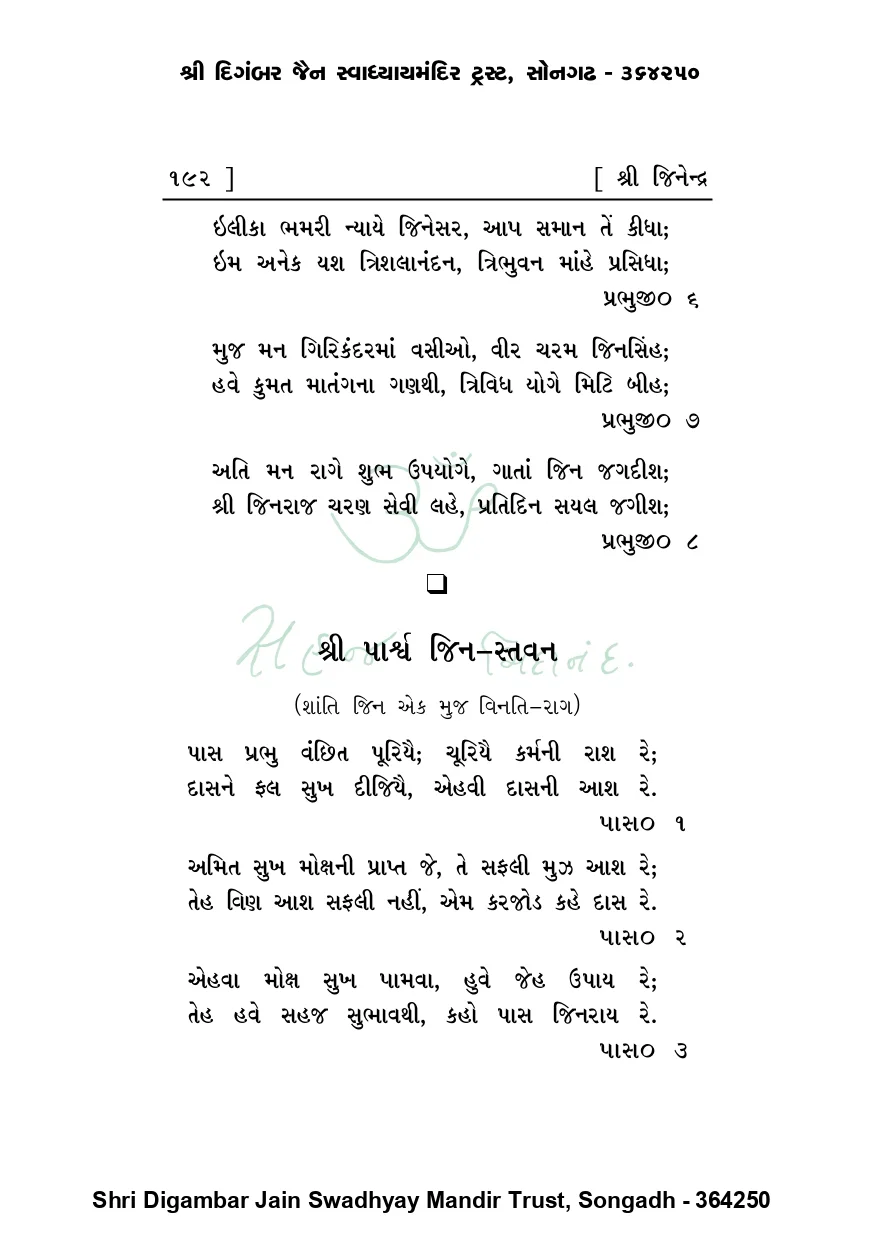 શ્રી દિગંબર જૈન સ્વાધ્યાયમંદિર ટ્રસ્ટ, સોનગઢ - ૩૬૪૨૫૦
૧૯૨ ] [ શ્રી જિનેન્દ્ર
ઇલીકા ભમરી ન્યાયે જિનેસર, આપ સમાન તેં કીધા;
ઇમ અનેક યશ ત્રિશલાનંદન, ત્રિભુવન માંહે પ્રસિધા;
પ્રભુજી૦ ૬
મુજ મન ગિરિકંદરમાં વસીઓ, વીર ચરમ જિનસિંહ;
હવે કુમત માતંગના ગણથી, ત્રિવિધ યોગે મિટિ બીહ;
પ્રભુજી૦ ૭
અતિ મન રાગે શુભ ઉપયોગે, ગાતાં જિન જગદીશ;
શ્રી જિનરાજ ચરણ સેવી લહે, પ્રતિદિન સયલ જગીશ;
પ્રભુજી૦ ૮
શ્રી પાર્શ્વ જિન–સ્તવન
(શાંતિ જિન એક મુજ વિનતિ–રાગ)
પાસ પ્રભુ વંછિત પૂરિયૈ; ચૂરિયૈ કર્મની રાશ રે;
દાસને ફલ સુખ દીજિયૈ, એહવી દાસની આશ રે.
પાસ૦ ૧
અમિત સુખ મોક્ષની પ્રાપ્ત જે, તે સફલી મુઝ આશ રે;
તેહ વિણ આશ સફલી નહીં, એમ કરજોડ કહે દાસ રે.
પાસ૦ ૨
એહવા મોક્ષ સુખ પામવા, હુવે જેહ ઉપાય રે;
તેહ હવે સહજ સુભાવથી, કહો પાસ જિનરાય રે.
પાસ૦ ૩
Shri Digambar Jain Swadhyay Mandir Trust, Songadh - 364250